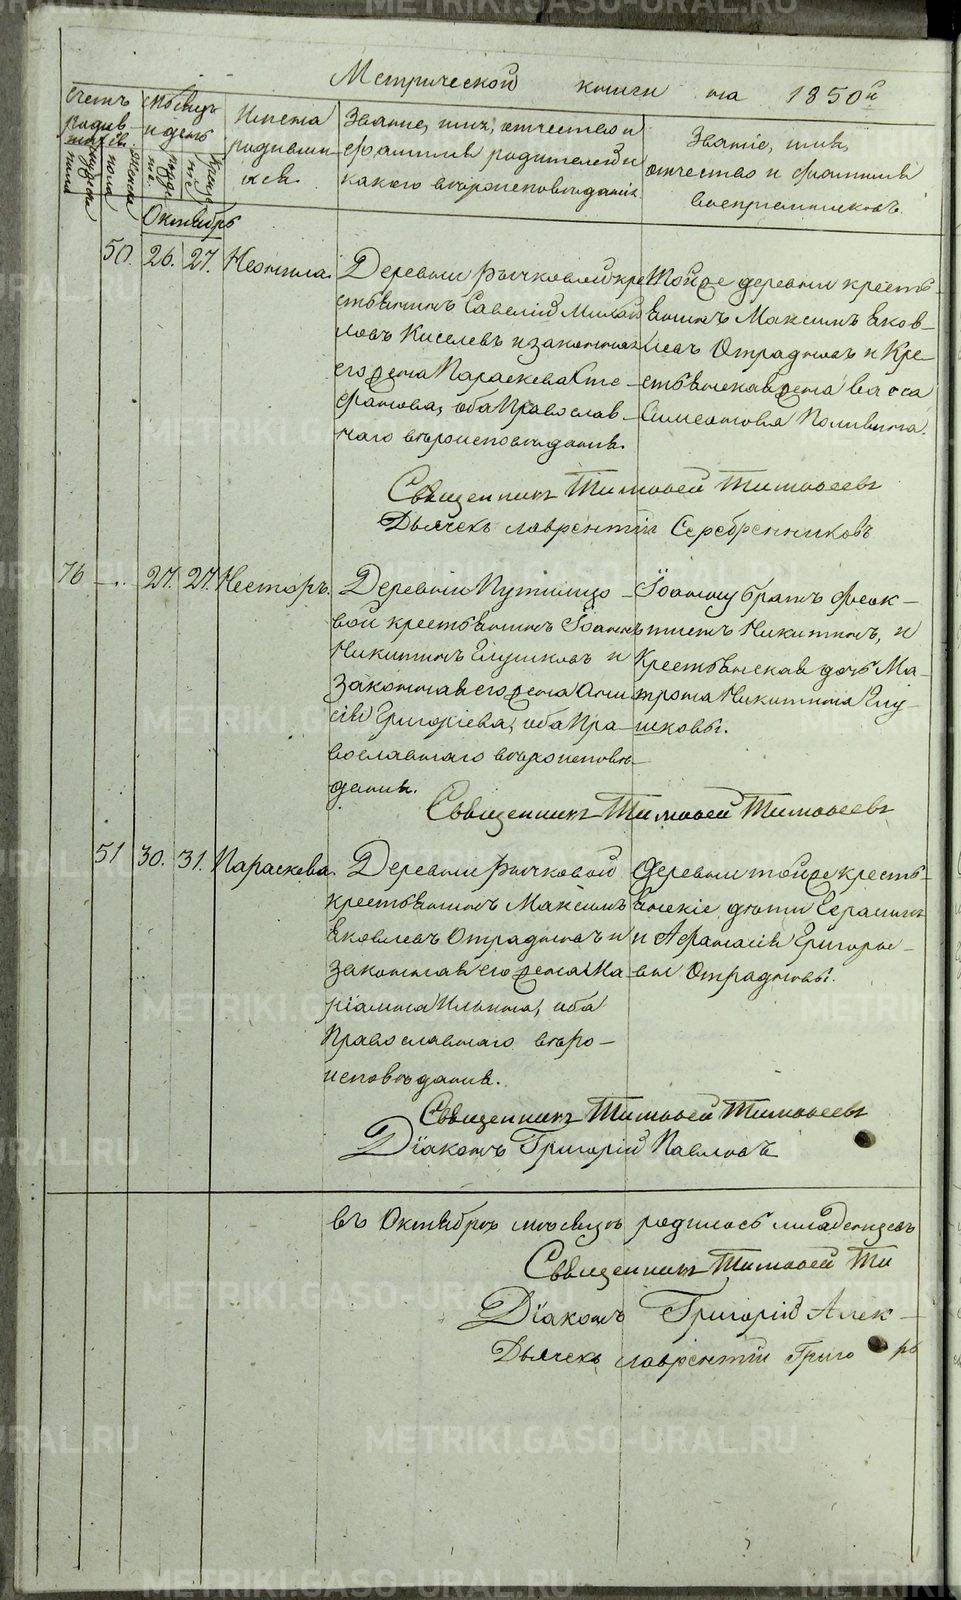 Метрической книги на 1850й
Счетъ родившихся
мужеска пола
женска
Мѣсяцъ и день
рожденія
крещенія
Имена родившихся
Званіе, имя, отчество и
фамилія родителей и
какого вѣроисповѣданія
Званіе, имя,
отчество и фамилія
воспріемниковъ
Октябрь
50. 26. 27. Неонила.
Деревни Рычковой кре
стьянинъ Савелій Михай
ловъ Киселевъ и законная
его жена Параскева Сте-
фанова, оба Православ-
наго вѣроисповѣданія.
Той же деревни кресть-
янинъ Максимъ Яков-
левъ Отрадновъ и Кре-
стьянская жена Васса
Симеонова
Священникъ Тимофей Тимофеевъ
Дьячекъ Лаврентій Серебренниковъ
76 — 27. 27. Несторъ.
Деревни
вой крестьянинъ Іоаннъ
Никитинъ Глушковъ и
законная его жена Ани
сія Григоріева, оба Пра-
вославнаго вѣроисповѣ-
данія.
Іоанну братъ Феок-
тистъ Никитинъ, и
Крестьянская дочь Ма-
трона Никитина Глу-
шковы.
Священникъ Тимофей Тимофеевъ
51 30. 31. Параскева.
Деревни Рычковой
крестьянинъ Максимъ
Яковлевъ Отрадновъ и
законная его жена Ма
ріамна Ильина, оба
Православнаго вѣро-
исповѣданія.
Деревни той же кресть-
янскіе дѣти
и Афанасія Григорье-
вы Отрадновы.
Священникъ Тимофей Тимофеевъ
Діаконъ Григорій Павловъ
въ Октябрѣ мѣсяцѣ родилось младенцевъ
Священникъ Тимофей Ти
Діаконъ Григорій Алек-
Дьячекъ Лаврентій
METRIKI.GASO-URAL.RU